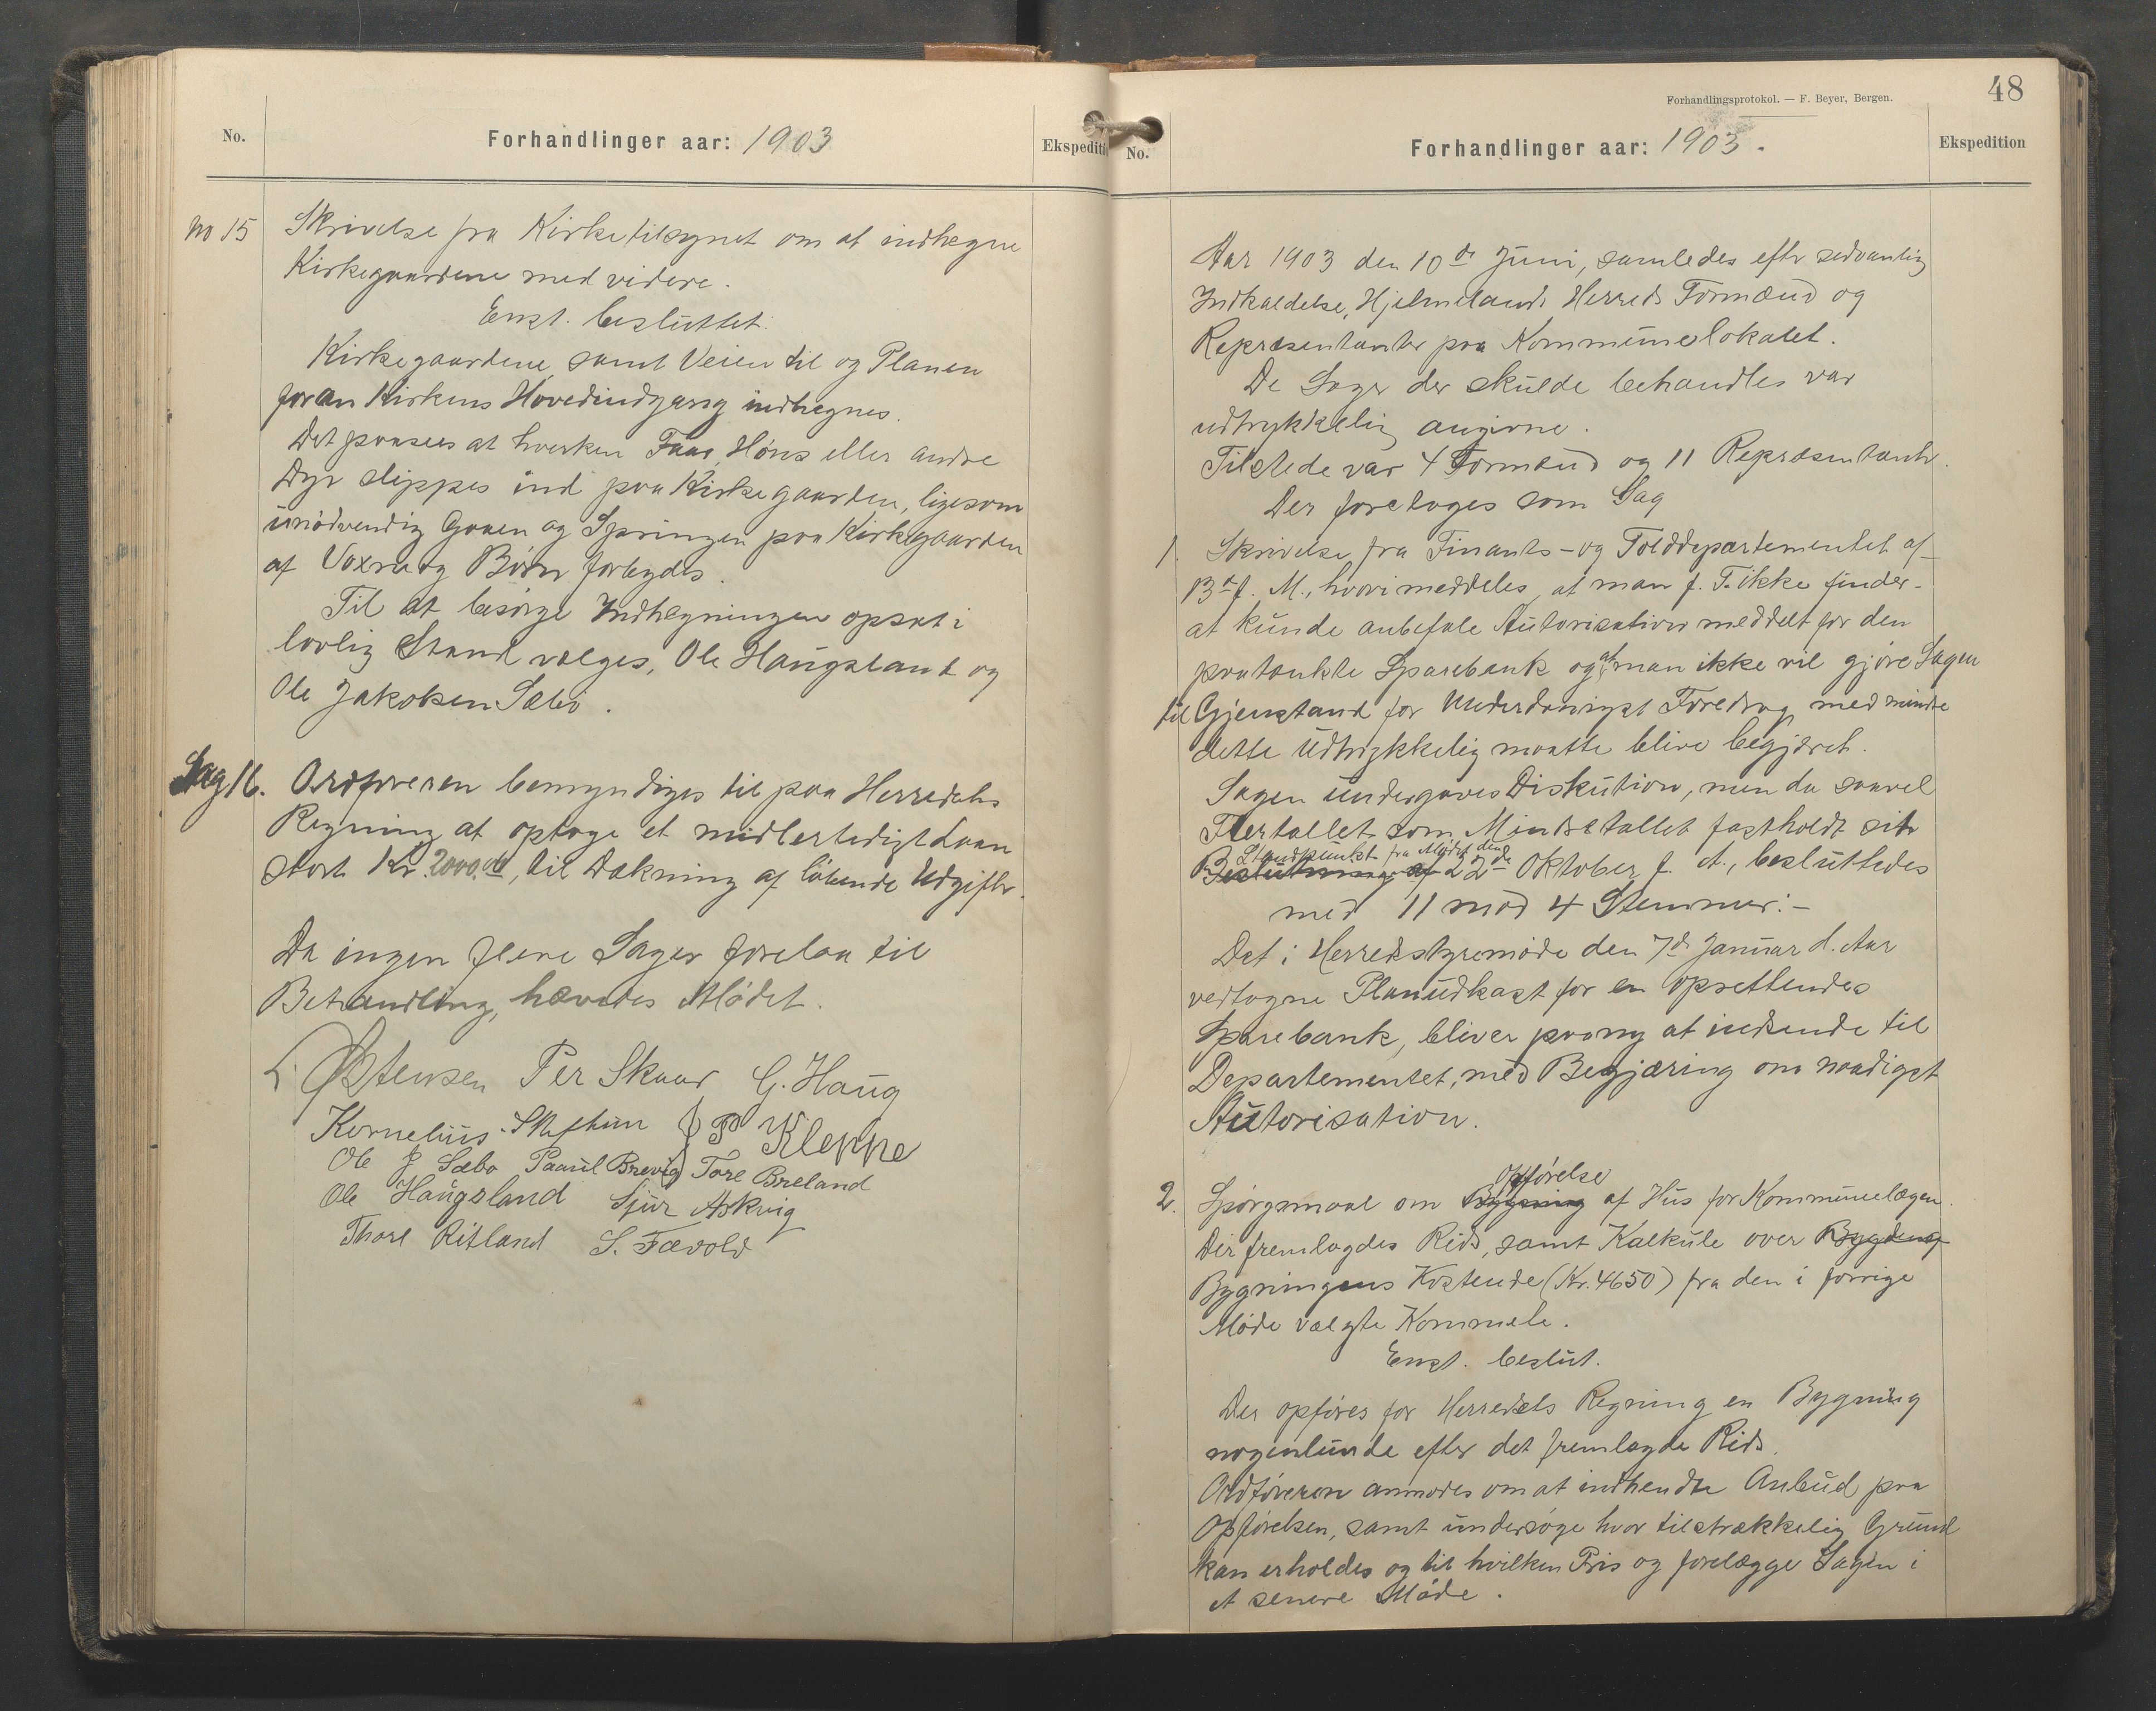 No.
Forhandlinger aar: 1903
Ekspediti
No 15 Skrivelse fra Kirketilsynet om at indhegne
Kirkegaardene med videre.
Enst. besluttet:
Kirkegaardene samt Veien til og Planen
foran Kirkens Hovedindgang indhegnes.
Det paasees at hverken Faar, Høns eller andre
Dyr slippes ind paa Kirkegaarden, ligesom
unødvendig Gaaen og Springen paa Kirkegaarden
af Voxne og Børn forbydes.
Til at besørge Indhegningen opsat i
lovlig Stand vælges, Ole Haugsland og
Ole Jakobsen Sæbø.
Sag 16. Ordføreren bemyndiges til paa Herredets
Regning at optage et midlertidigt Laan
stort Kr. 2000.00, til Dækning af løbende Udgifter.
Da ingen flere Sager forelaa til
Behandling, hævedes Mødet.
L. Østensen Per Skaar G. Haug
Kornelius Skiftun J P Kleppe
Ole J Sæbø Paaul Brevig Tore Breland
Ole Haugsland Sjur Askvig
Thore Ritland S. Fævold
Forhandlingsprotokol. — F. Beyer, Bergen.
48
No.
Forhandlinger aar: 1903.
Ekspedition
Aar 1903 den 10de Juni, samledes efter sedvanlig
Indkaldelse, Hjelmelands Herreds Formænd og
Repræsentanter paa Kommunelokalet.
De Sager der skulde behandles var
udtrykkelig angivne.
Tilstede var 4 Formænd og 11 Repræsentanter.
Der foretoges som Sag
1. Skrivelse fra Finants- og Tolddepartementet af
13de f. M., hvori meddeles, at man f. T. ikke finder
at kunde anbefale Autorisation meddelt for den
paatænkte Sparebank og at man ikke vil gjøre Sagen
til Gjenstand for Underdanigst Foredrag med mindre
dette Udtrykkelig maatte blive begjæret.
Sagen undergaves Diskution, men da saavel
Flertallet som Mindretallet fastholdt sit
Standpunkt fra Mødet den
Beslutning af 22de Oktober f. A., besluttedes
med 11 mod 4 Stemmer:-
Det i Herredstyremøde den 7de Januar d. Aar
vedtagne Planudkast for en oprettendes
Sparebank, bliver paany at indsende til
Departementet, med Begjæring om naadigst
Autorisation.
Opførelse
2. Spørgsmaal om Bygning af Hus for Kommunelægen.
Der fremlagdes Rids, samt Kalkule over Bygdeng
Bygningens Kostende (Kr. 4650) fra den i forrige
Møde valgte Kommite.
Enst. beslut.
Der opføres for Herredets Regning en Bygning
nogenlunde efter det fremlagde Rids.
Ordføreren anmodes om at indhendte Anbud paa
Opførelsen, samt undersøge hvor tilstrækkelig Grund
kan erholdes og til hvilken Pris og forelægge Sagen i
et senere Møde.